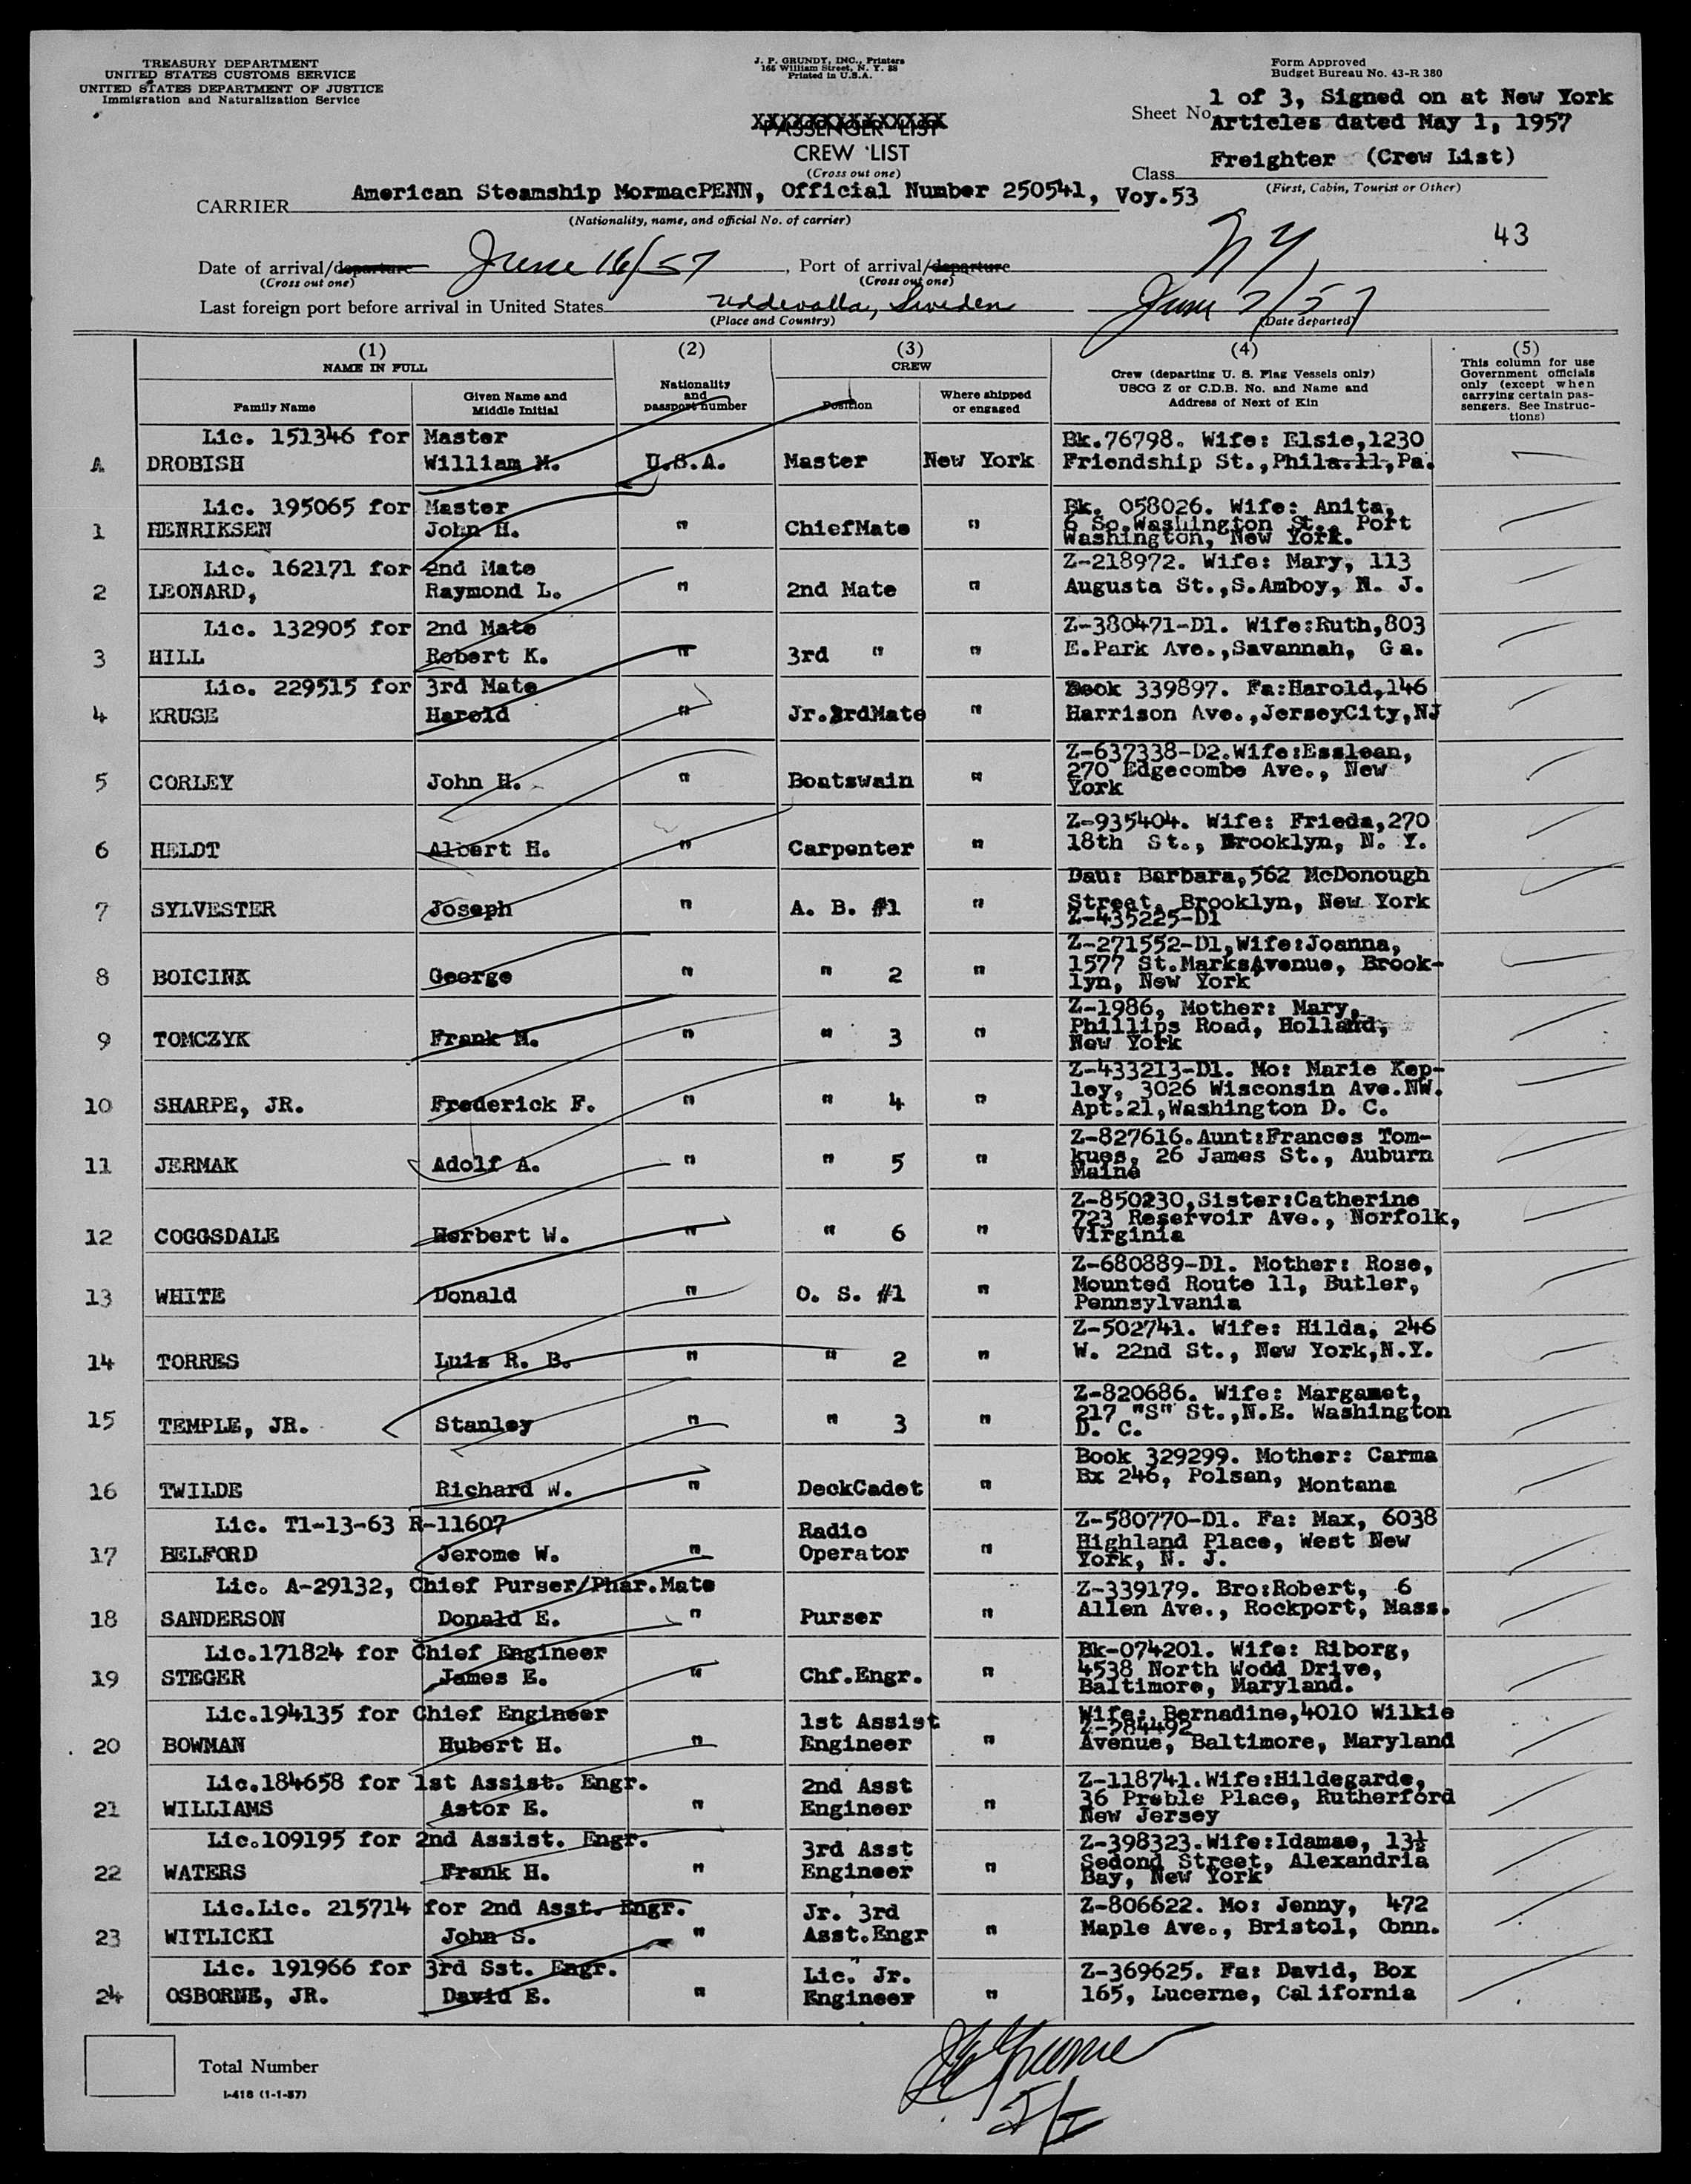 TREASURY DEPARTMENT
UNITED STATES CUSTOMS SERVICE
UNITED STATES DEPARTMENT OF JUSTICE
Immigration and Naturalization Service
J. P. GRUNDY, INC., Printers
165 William Street, N. Y. 38
Printed in U.S.A.
Form Approved
Budget Bureau No. 43-R 380
Sheet No. 1 of 3, Signed on at New York
Articles dated May 1, 1957
PASSENGER LIST
CREW LIST
(Cross out one)
Class Freighter (Crew List)
(First, Cabin, Tourist or Other)
CARRIER American Steamship MormacPENN, Official Number 250541, Voy.53
(Nationality, name, and official No. of carrier)
43
Date of arrival/departure June 16/57, Port of arrival/departure NY
(Cross out one) (Cross out one)
Last foreign port before arrival in United States Uddevalla, Sweden June 7/57
(Place and Country) (Date departed)
(1) (2) (3) (4) (5)
NAME IN FULL CREW
Family Name Given Name and Middle Initial Nationality and passport number Position Where shipped or engaged Crew (departing U. S. Flag Vessels only) USCG Z or C.D.B. No. and Name and Address of Next of Kin This column for use Government officials only (except when carrying certain passengers. See Instructions)
Lic. 151346 for Master Bk.76798. Wife: Elsie,1230
A DROBISH William M. U.S.A. Master New York Friendship St.,Phila.11,Pa.
Lic. 195065 for Master Bk. 058026. Wife: Anita,
1 HENRIKSEN John H. " ChiefMate " 6 So.Washington St., Port
Washington, New York.
Lic. 162171 for 2nd Mate Z-218972. Wife: Mary, 113
2 LEONARD, Raymond L. " 2nd Mate " Augusta St.,S.Amboy, N. J.
Lic. 132905 for 2nd Mate Z-380471-D1. Wife:Ruth,803
3 HILL Robert K. " 3rd " " E.Park Ave.,Savannah, Ga.
Lic. 229515 for 3rd Mate Book 339897. Fa:Harold,146
4 KRUSE Harold " Jr.3rdMate " Harrison Ave.,JerseyCity,NJ
Z-637338-D2.Wife:Esslean,
5 CORLEY John H. " Boatswain " 270 Edgecombe Ave., New
York
Z-935404. Wife: Frieda,270
6 HELDT Albert H. " Carpenter " 18th St., Brooklyn, N. Y.
Dau: Barbara,562 McDonough
7 SYLVESTER Joseph " A. B. #1 " Street, Brooklyn, New York
Z-435225-D1
Z-271552-D1,Wife:Joanna,
8 BOICINK George " " 2 " 1577 St.MarksAvenue, Brook-
lyn, New York
Z-1986, Mother: Mary,
9 TOMCZYK Frank M. " " 3 " Phillips Road, Holland,
New York
Z-433213-D1. Mo: Marie Kep-
10 SHARPE, JR. Frederick F. " " 4 " ley, 3026 Wisconsin Ave.NW.
Apt.21,Washington D. C.
Z-827616.Aunt:Frances Tom-
11 JERMAK Adolf A. " " 5 " kues, 26 James St., Auburn
Maine
Z-850230,Sister:Catherine
12 COGGSDALE Herbert W. " " 6 " 723 Reservoir Ave., Norfolk,
Virginia
Z-680889-D1. Mother: Rose,
13 WHITE Donald " O. S. #1 " Mounted Route 11, Butler,
Pennsylvania
Z-502741. Wife: Hilda, 246
14 TORRES Luis R. B. " " 2 " W. 22nd St., New York,N.Y.
Z-820686. Wife: Margamet,
15 TEMPLE, JR. Stanley " " 3 " 217 "S" St.,N.E. Washington
D. C.
Book 329299. Mother: Carma
16 TWILDE Richard W. " DeckCadet " Bx 246, Polsan, Montana
Lic. T1-13-63 R-11607 Z-580770-D1. Fa: Max, 6038
17 BELFORD Jerome W. " Radio Operator " Highland Place, West New
York, N. J.
Lic. A-29132, Chief Purser/Phar.Mate Z-339179. Bro:Robert, 6
18 SANDERSON Donald E. " Purser " Allen Ave., Rockport, Mass.
Lic.171824 for Chief Engineer Bk-074201. Wife: Riborg,
19 STEGER James E. " Chf.Engr. " 4538 North Wodd Drive,
Baltimore, Maryland.
Lic.194135 for Chief Engineer Wife: Bernadine,4010 Wilkie
Z-284492
20 BOWMAN Hubert H. " 1st Assist Engineer " Avenue, Baltimore, Maryland
Lic.184658 for 1st Assist. Engr. Z-118741.Wife:Hildegarde,
21 WILLIAMS Astor E. " 2nd Asst Engineer " 36 Preble Place, Rutherford
New Jersey
Lic.109195 for 2nd Assist. Engr. Z-398323.Wife:Idamae, 13½
22 WATERS Frank H. " 3rd Asst Engineer " Sedond Street, Alexandria
Bay, New York
Lic.Lic. 215714 for 2nd Asst. Engr. Z-806622. Mo: Jenny, 472
23 WITLICKI John S. " Jr. 3rd Asst.Engr " Maple Ave., Bristol, Conn.
Lic. 191966 for 3rd Sst. Engr. Z-369625. Fa: David, Box
24 OSBORNE, JR. David E. " Lic. Jr. Engineer " 165, Lucerne, California
Total Number
I-418 (1-1-57)